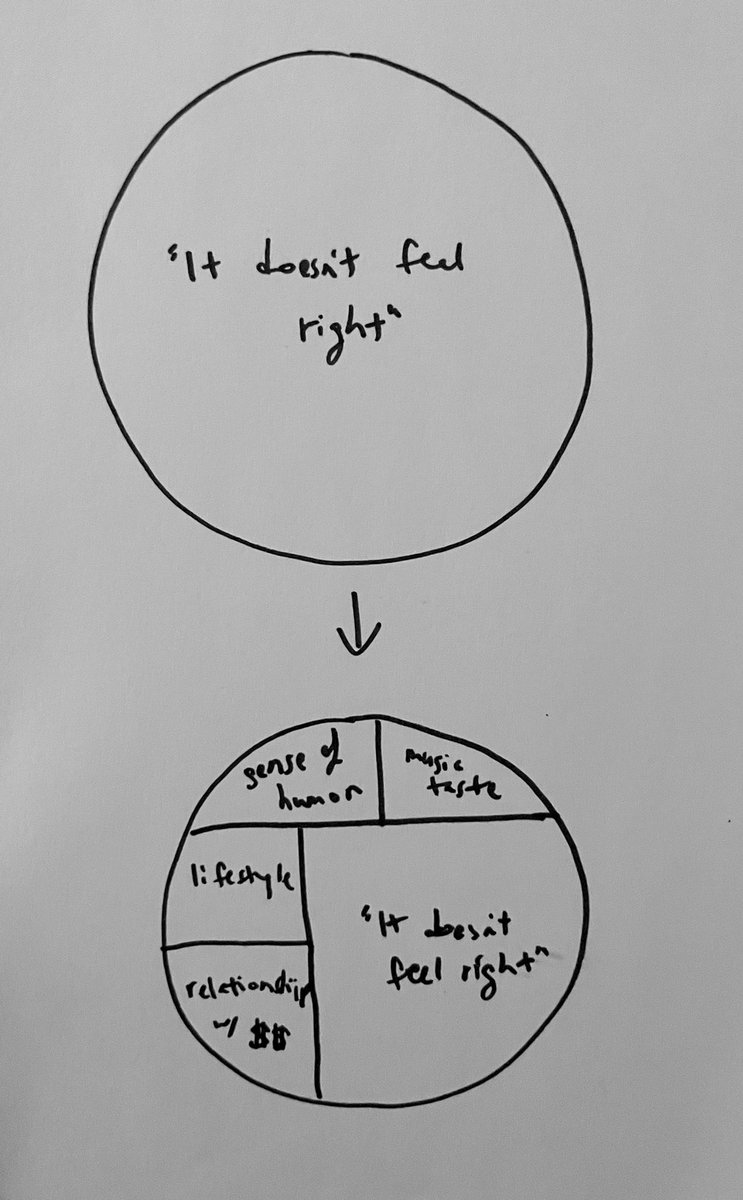 "It doesn't feel
right"
sense of
humor
music
taste
lifestyle
"It doesn't
feel right"
relationship
w/ $$